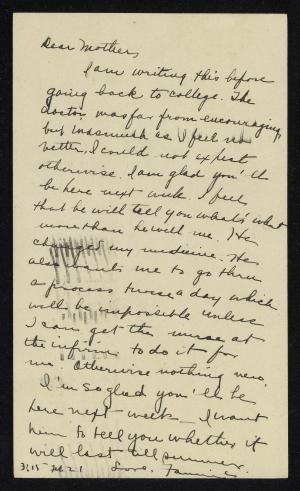 Dear Mother,
I am writing this before
going back to college. The
doctor was far from encouraging,
but inasmuch as I feel no
better, I could not expect
otherwise. I am glad you'll
be here next week. I feel
that he will tell you what's what
more than he will me. He
changed my medicine. He
also wants me to go thru
a process twice a day which
will be impossible unless
I can get the nurse at
the infirm. to do it for
me. Otherwise nothing new.
I'm so glad you'll be
here next week — I want
him to tell you whether it
will last all summer.
Love.